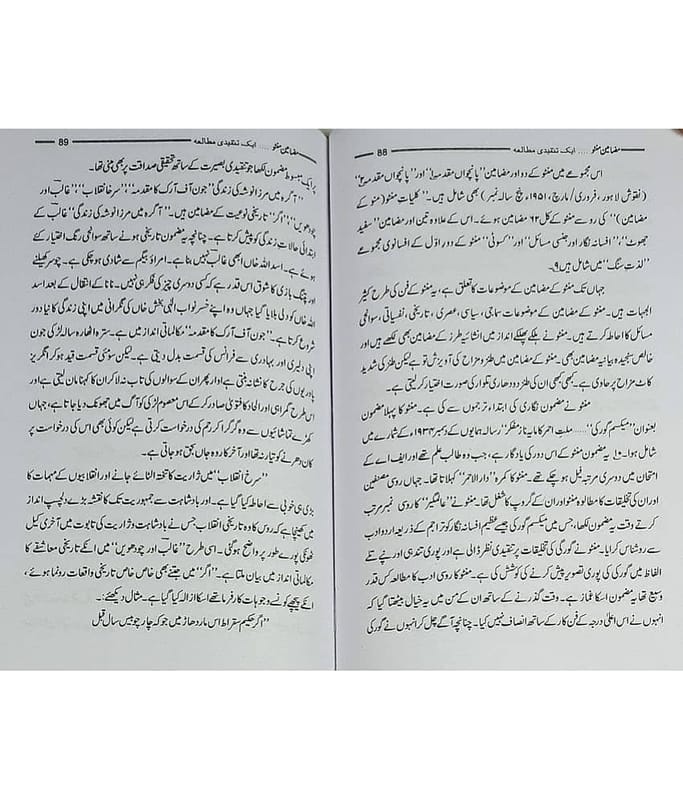 مضامین منٹو .... ایک تنقیدی مطالعہ 88
اس مجموعے میں منٹو کے دو اور مضامین ”پانچواں مقدمہ“ اور ”پانچواں مقدمہ“
(نقوش لاہور، فروری/مارچ، ۱۹۵۱ء پنج سالہ نمبر) بھی شامل ہیں۔ ”کلیات منٹو (منٹو کے
مضامین)“ کی رو سے منٹو کے کل ۶۲ مضامین ہوئے۔ اس کے علاوہ تین اور مضامین ”سفید
جھوٹ“، ”افسانہ نگار اور جنسی مسائل“ اور ”کسوٹی“ منٹو کے دور اوّل کے افسانوی مجموعے
”لذتِ سنگ“ میں شامل ہیں ۹۔
جہاں تک منٹو کے مضامین کے موضوعات کا تعلق ہے، یہ منٹو کے فن کی طرح کثیر
الجہات ہیں۔ منٹو کے مضامین کے موضوعات سماجی، سیاسی، عصری، تاریخی، نفسیاتی، سوانحی
مسائل کا احاطہ کرتے ہیں۔ منٹو نے ہلکے پھلکے انداز میں انشائیہ طرز کے مضامین بھی لکھے ہیں اور
خالص سنجیدہ بیانیہ مضامین بھی۔ منٹو کے مضامین میں طنز و مزاح کی آویزش تو ہے لیکن طنز کی شدید
کاٹ مزاح پر حاوی ہے۔ کبھی کبھی ان کی طنز دو دھاری تلوار کی صورت اختیار کر لیتی ہے۔
منٹو نے مضمون نگاری کی ابتداء ترجموں سے کی ہے۔ منٹو کا پہلا مضمون
بعنوان ”میکسم گورکی“ ..... ملتِ احمر کا مایہ ناز مفکر“ رسالہ ہمایوں کے دسمبر ۱۹۳۴ء کے شمارے میں
شامل ہوا۔ ۱۰ یہ مضمون منٹو کے اس دور کی یادگار ہے، جب وہ طالب علم تھے اور ایف اے کے
امتحان میں دوسری مرتبہ فیل ہو چکے تھے۔ منٹو کا کمرہ ”دار الاحمر“ کہلاتا تھا۔ جہاں روسی مصنفین
اور ان کی تخلیقات کا مطالعہ منٹو اور ان کے گروپ کا شغل تھا۔ منٹو نے ”عالمگیر“ کا روسی نمبر مرتب
کرتے وقت یہ مضمون لکھا، جس میں میکسم گورکی جیسے عظیم افسانہ نگار کو تراجم کے ذریعہ اردو ادب
سے روشناس کرایا۔ منٹو نے گورکی کی تخلیقات پر تنقیدی نظر ڈالی ہے اور پوری تندہی اور نپے تلے
الفاظ میں گورکی کی پوری تصویر پیش کرنے کی کوشش کی ہے۔ منٹو کا روسی ادب کا مطالعہ کس قدر
وسیع تھا یہ مضمون اسکا غماز ہے۔ وقت گذرنے کے ساتھ ان کے من میں یہ خیال بیٹھتا گیا کہ
انہوں نے اس اعلیٰ درجہ کے فن کار کے ساتھ انصاف نہیں کیا۔ چنانچہ آگے چل کر انہوں نے گورکی
مضامین منٹو .... ایک تنقیدی مطالعہ 89
پر ایک مبسوط مضمون لکھا جو تنقیدی بصیرت کے ساتھ تحقیقی صداقت پر بھی مبنی تھا۔
”آگرہ میں مرزا نوشہ کی زندگی“ ”جون آف آرک کا مقدمہ“، ”سرخ انقلاب“، ”غالب اور
چودھویں“، ”اگر“ تاریخی نوعیت کے مضامین ہیں۔ ”آگرہ میں مرزا نوشہ کی زندگی“ غالب کے
ابتدائی حالات زندگی کو پیش کرتا ہے۔ چنانچہ یہ مضمون تاریخی ہونے ساتھ سوانحی رنگ اختیار کئے
ہوئے ہے۔ اسد اللہ خاں ابھی غالب نہیں بنا ہے۔ امراؤ بیگم سے شادی ہو چکی ہے۔ چوسر کھیلنے
اور پتنگ بازی کا شوق اس قدر ہے کہ کسی دوسری چیز کی فکر ہی نہیں۔ نانا کے انتقال کے بعد اسد
اللہ خاں کو دلی بلایا گیا جہاں وہ اپنے خسر نواب الٰہی بخش خاں کی نگرانی میں اپنی زندگی کا نیا دور
شروع کرتا ہے۔ ”جون آف آرک کا مقدمہ“ مکالماتی انداز میں ہے۔ سترہ اٹھارہ سالہ لڑکی جون
اپنی دلیری اور بہادری سے فرانس کی قسمت بدل دیتی ہے۔ لیکن سوئی قسمت قید ہو کر انگریز
پادریوں کی جرح کا نشانہ بنتی ہے اور پھر ان کے سوالوں کی تاب نہ لا کر ان کا کہنا مان لیتی ہے اور
اس طرح گمراہی اور الحاد کا فتویٰ صادر کر کے اس معصوم لڑکی کو آگ میں جھونک دیا جاتا ہے، جہاں
کھڑے تماشائیوں سے وہ گڑگڑا کر رحم کی درخواست کرتی ہے لیکن کوئی بھی اس کی درخواست پر
کان دھرنے کو تیار نہ تھا اور آخر کار وہ جاں بحق ہو جاتی ہے۔
”سرخ انقلاب“ میں زاریت کا تختہ الٹائے جانے اور انقلابیوں کے مہمات کا
بڑی ہی خوبی سے احاطہ کیا گیا ہے۔ اور بادشاہت سے جمہوریت تک کا نقشہ بڑے دلچسپ انداز
میں کھینچا ہے کہ روس کا وہ تاریخی انقلاب جس نے بادشاہت و زاریت کی تابوت میں آخری کیل
ٹھونکی پورے طور پر واضح ہو گئی۔ اسی طرح ”غالب اور چودھویں“ میں انکے تاریخی معاشقے کا
مکالماتی انداز میں بیان ملتا ہے۔ ”اگر“ میں جتنے بھی خاص خاص تاریخی واقعات رونما ہوئے،
انکے پیچھے کونسے وجوہات کار فرما تھے اسکا ازالہ کیا گیا ہے۔ مثال دیکھئے:۔
”اگر حکیم سقراط اس مار دھاڑ میں جو کہ چار چوبیس سال قبل